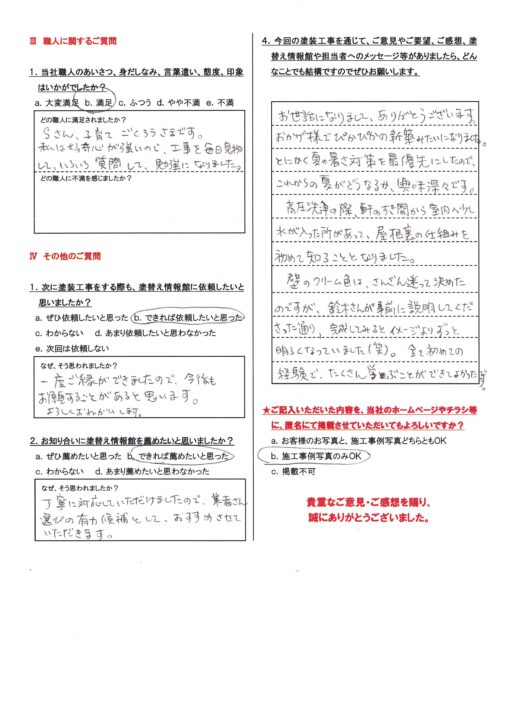 Ⅲ 職人に関するご質問
1. 当社職人のあいさつ、身だしなみ、言葉遣い、態度、印象
はいかがでしたか?
a. 大変満足 b. 満足 c. ふつう d. やや不満 e. 不満
どの職人に満足されましたか?
Sさん、子育て ごくろうさまです。
私は好奇心が強いので、工事を毎日見物
して、いろいろ 質問 して、勉強になりました。
どの職人に不満を感じましたか?
Ⅳ その他のご質問
1. 次に塗装工事をする際も、塗替え情報館に依頼したいと
思いましたか?
a. ぜひ依頼したいと思った b. できれば依頼したいと思った
c. わからない d. あまり依頼したいと思わなかった
e. 次回は依頼しない
なぜ、そう思われましたか?
一度ご縁ができましたので、今後も
お願することがあると思います。
よろしくおねがいします。
2. お知り合いに塗替え情報館を薦めたいと思いましたか?
a. ぜひ薦めたいと思った b. できれば薦めたいと思った
c. わからない d. あまり薦めたいと思わなかった
なぜ、そう思われましたか?
丁寧に対応していただけましたので、業者さん
選びの有力候補として、おすすめさせて
いただきます。
4. 今回の塗装工事を通じて、ご意見やご要望、ご感想、塗
替え情報館や担当者へのメッセージ等がありましたら、どん
なことでも結構ですのでぜひお願いします。
お世話になりまして、ありがとうございます。
おかげ様でぴかぴかの新築みたいになりましたね。
とにかく夏の暑さ対策を最優先にしたので、
これからの夏がどうなるか、興味深々です。
高圧洗浄の際、軒のすき間から室内へ少し
水が入った所があって、屋根裏の仕組みを
初めて知ることとなりました。
壁のクリーム色は、さんざん迷って決めた
のですが、鈴木さんが事前に説明してくだ
さった通り、完成してみるとイメージよりずっと
明るくなっていました(笑)。 全て初めての
経験で、たくさん学ぶことができてよかったです。
★ご記入いただいた内容を、当社のホームページやチラシ等
に、匿名にて掲載させていただいてもよろしいですか?
a. お客様のお写真と、施工事例写真どちらともOK
b. 施工事例写真のみOK
c. 掲載不可
貴重なご意見・ご感想を賜り、
誠にありがとうございました。